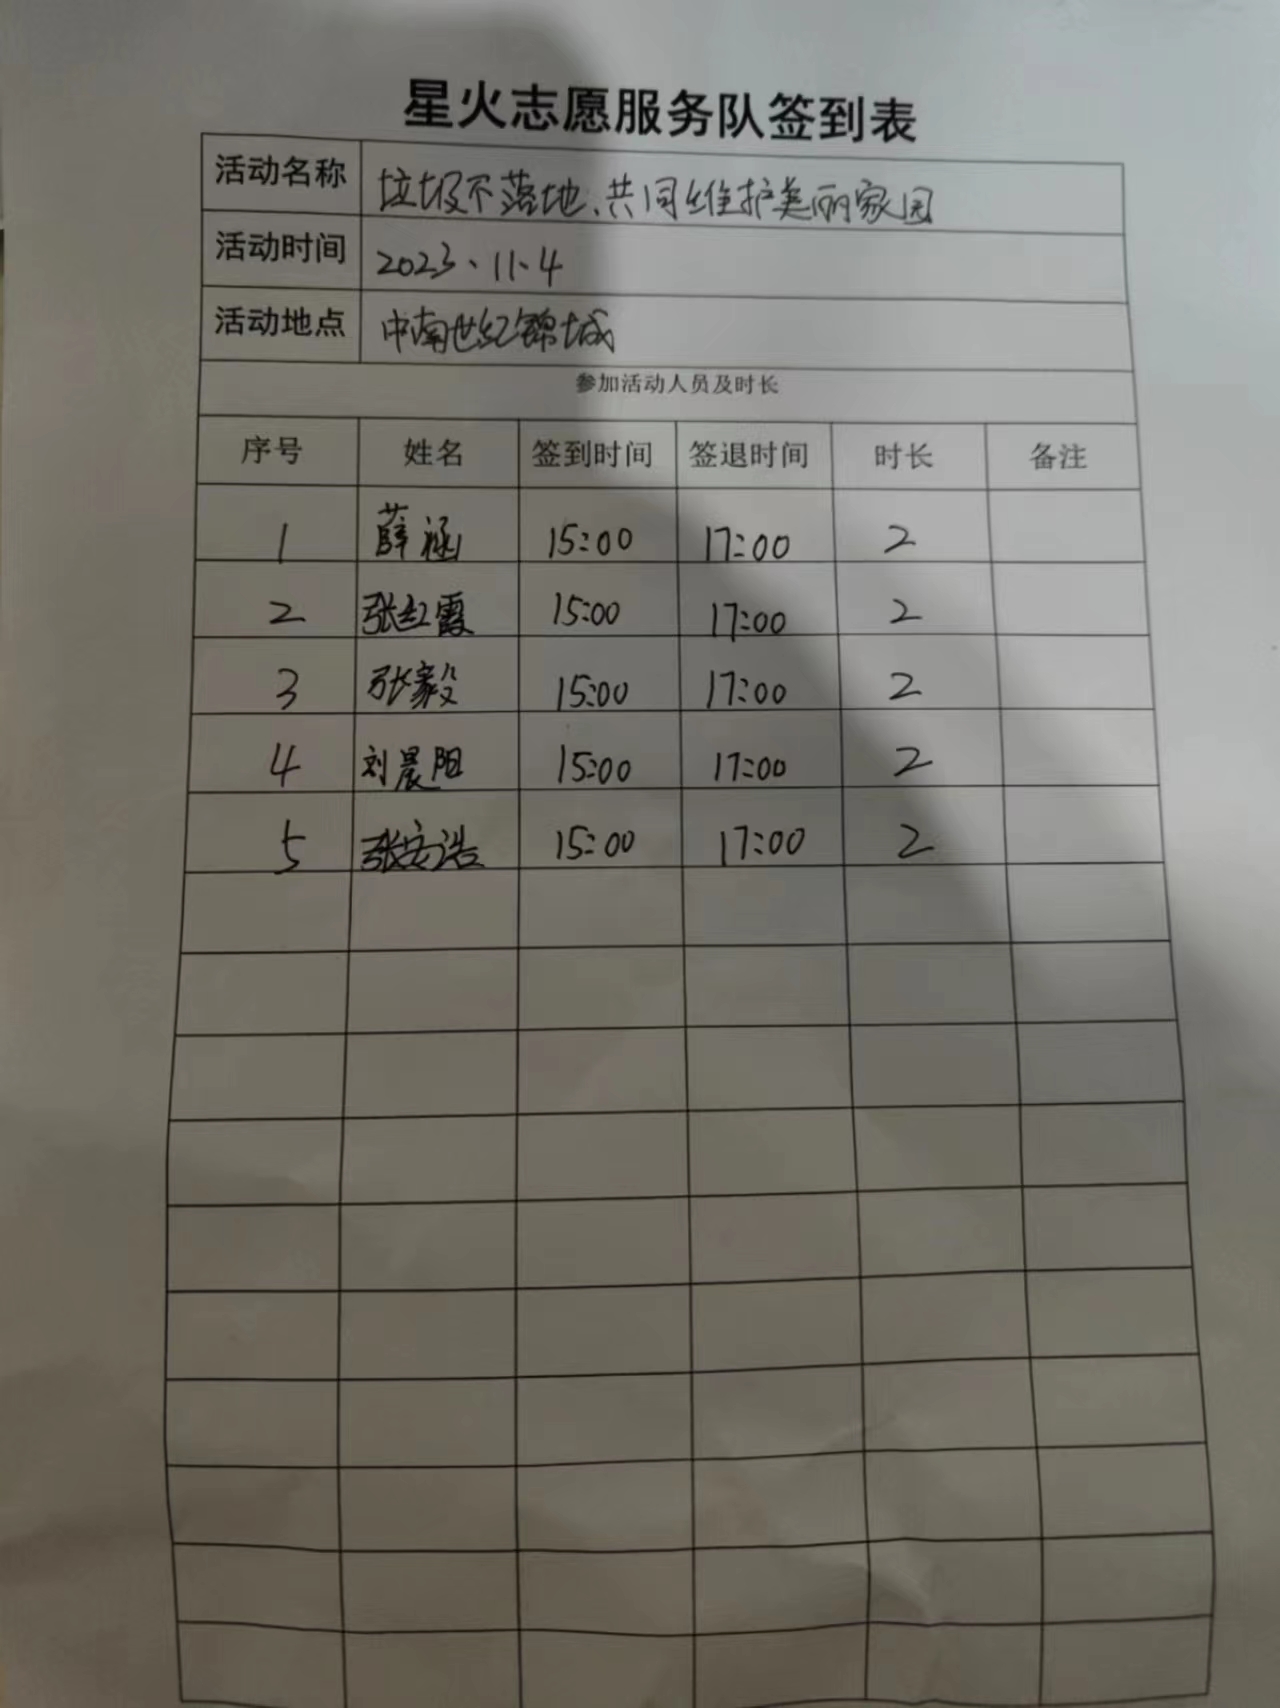 星火志愿服务队签到表
活动名称 垃圾不落地、共同维护美丽家园
活动时间 2023、11、4
活动地点 中南世纪锦城
参加活动人员及时长
序号 姓名 签到时间 签退时间 时长 备注
1 薛涵 15:00 17:00 2
2 张红霞 15:00 17:00 2
3 张毅 15:00 17:00 2
4 刘晨阳 15:00 17:00 2
5 张安浩 15:00 17:00 2